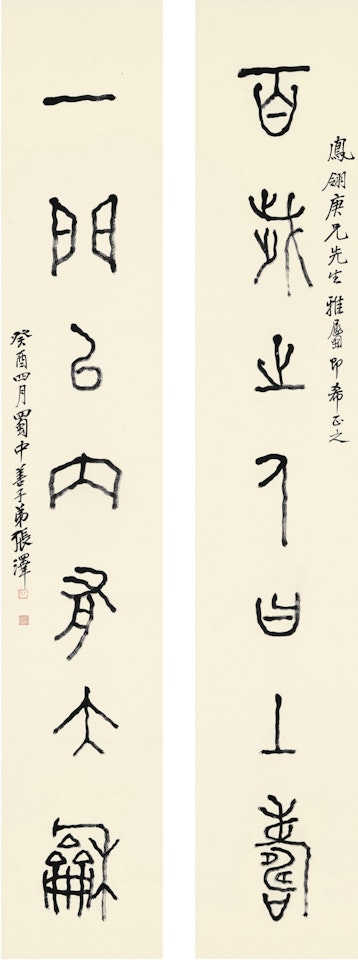 鳳翎庚兄先生雅屬即希正之
百歲之人曰上壽
一門以內有大龢
癸酉四月蜀中善子弟張澤